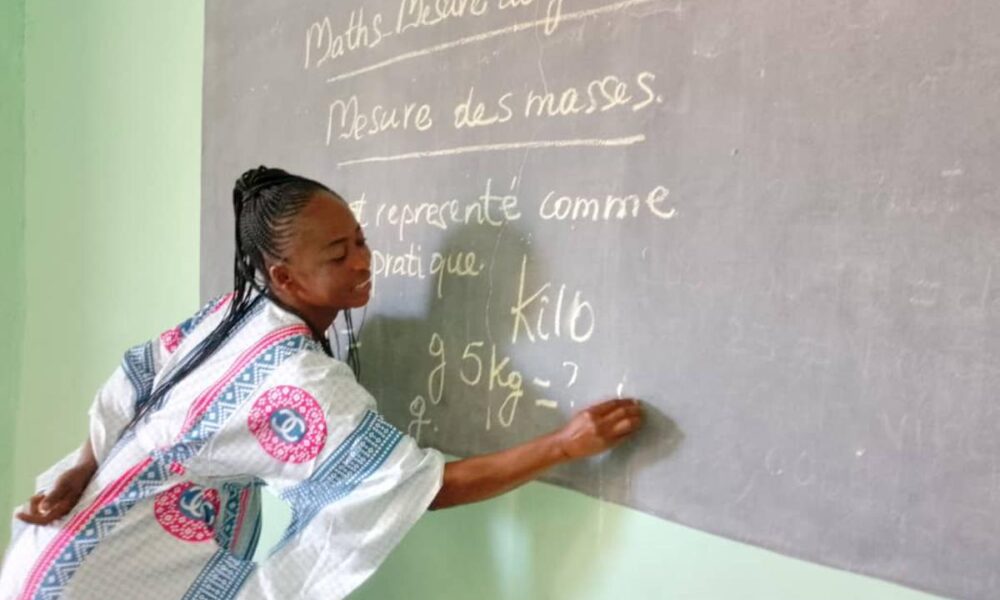 Maths Mesure de
Mesure des masses.
représenté comme
pratique.
Kilo
g 5kg = ?
g.